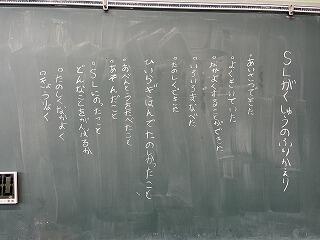 SLがくしゅうのふりかえり
・あいさつできた
・よくきいていた
・なかよくすることができた
・いろいろまなべた
・たのしくできた
ひいらぎはんでたのしかったこと
・おべんとうをたべたこと
・あそんだこと
・SLにのったこと
どんなことをがんばるか
・たのしくなかよく
・きょうりょく